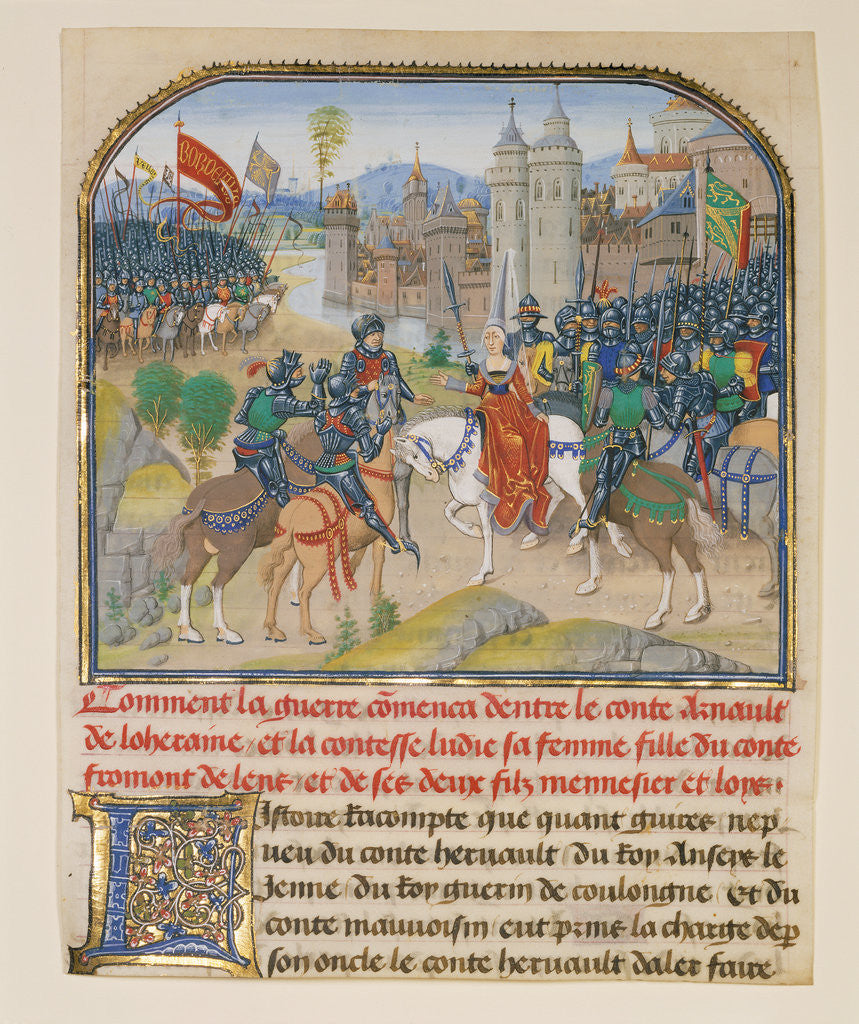 BORDEAULX
Comment la guerre cōmenca dentre le conte Arnault
de loheraine / et la contesse ludie sa femme fille du conte
fromont de lens / et de ses deux filz mennesier et loys.
Listoire racompte que quant guires nep
ueu du conte heruault / du roy Anseys le
Jenne / du roy guerin de coulongne / et du
conte mauuoisin / eut prins la charge de p
son oncle le conte heruault daler faire